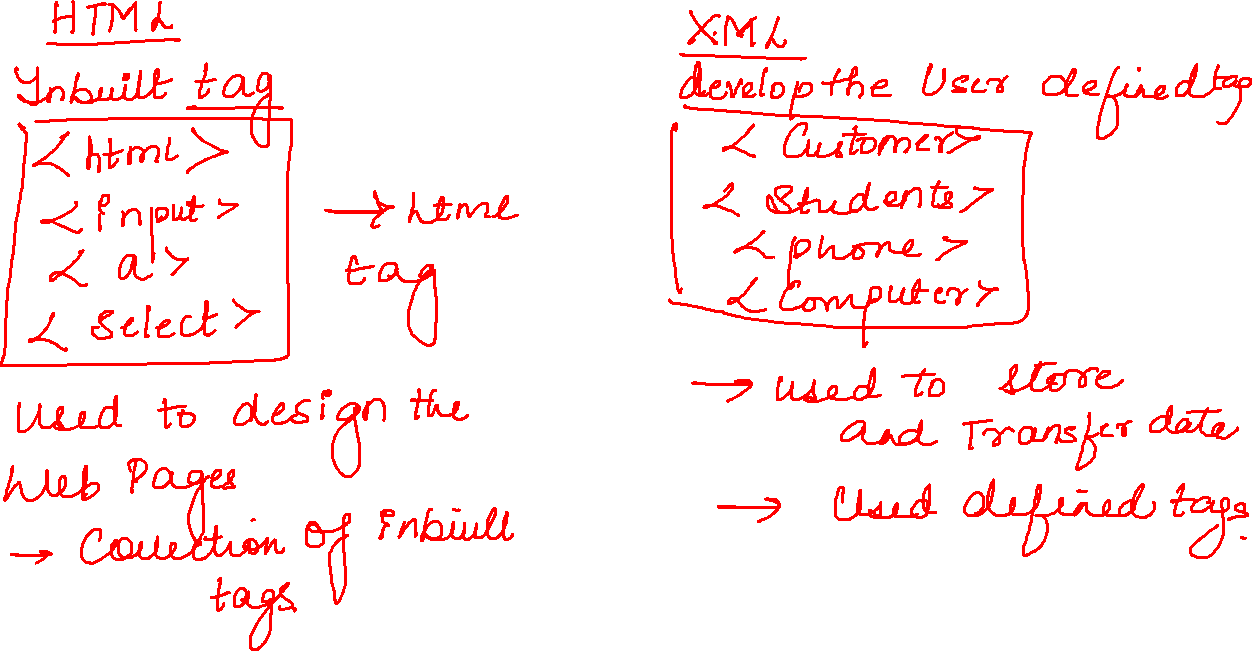 HTML
Inbuilt tag
<html>
<input>
<a>
<select>
→ html
tag
Used to design the
Web Pages
→ Collection of inbiult
tags
XML
develop the User defined tag
<Customer>
<Students>
<phone>
<Computer>
→ used to store
and Transfer date
→ Used defined tags.